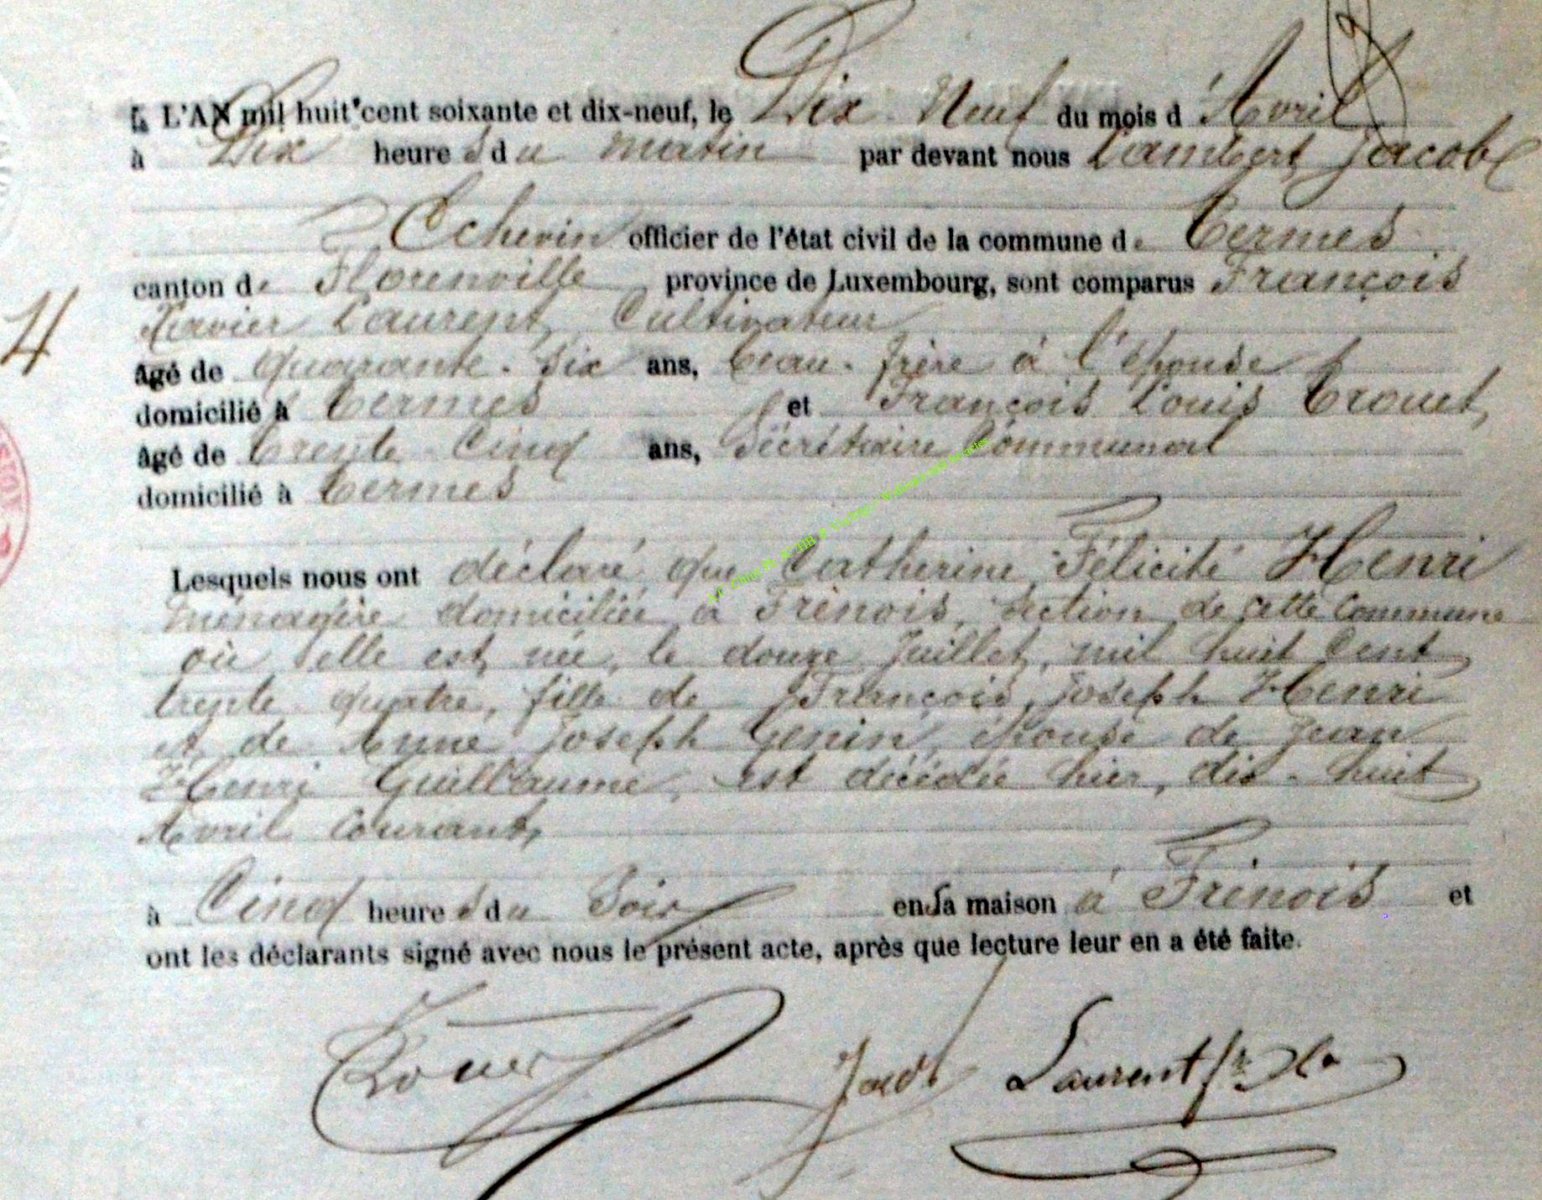 L'AN mil huit cent soixante et dix-neuf, le Dix Neuf du mois d'Avril
à Dix heures du matin par devant nous Lambert Jacob
Echevin officier de l'état civil de la commune de Termes
canton de Florenville province de Luxembourg, sont comparus François
Xavier Laurent, Cultivateur
âgé de quarante-six ans, beau-frère à l'épouse
domicilié à Termes et François Louis Trouet,
âgé de trente cinq ans, Sécrétaire Communal
domicilié à Termes
4
Lesquels nous ont déclaré que Catherine Félicité Henri
ménagère domiciliée à Frenois, section de cette Commune
où elle est née, le douze Juillet, mil huit cent
trente quatre, fille de François Joseph Henri
et de Anne Joseph Genin, épouse de Jean
Henri Guillaume, est décédée hier, dix-huit
Avril courant,
à Cinq heures du Soir en sa maison à Frenois et
ont les déclarants signé avec nous le présent acte, après que lecture leur en a été faite.
Trouet Jacob Laurent fr. x